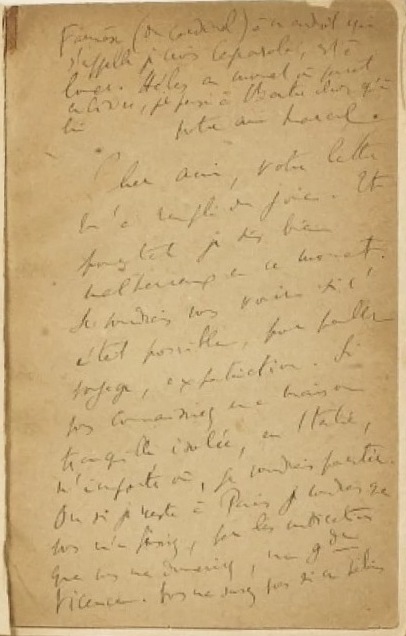 Farnèse (du Cardinal) à un endroit qui
s'appelle je crois Caprarola, est à
louer. Hélas au moment où
je pense à toute autre chose qu'à
lui Votre ami Marcel.
Cher ami, votre lettre
m'a rempli de joie. Et
pourtant je suis bien
malheureux en ce moment.
Je voudrais vous voir si c'
était possible, pour parler
voyage, expatriation. Si
vous connaissiez une maison
tranquille isolée, en Italie,
n'importe où, je voudrais partir.
Ou si je reste à Paris je voudrais que
vous, sur les indications
que vous me donneriez, un gd
service. Vous ne savez pas si ce Palais